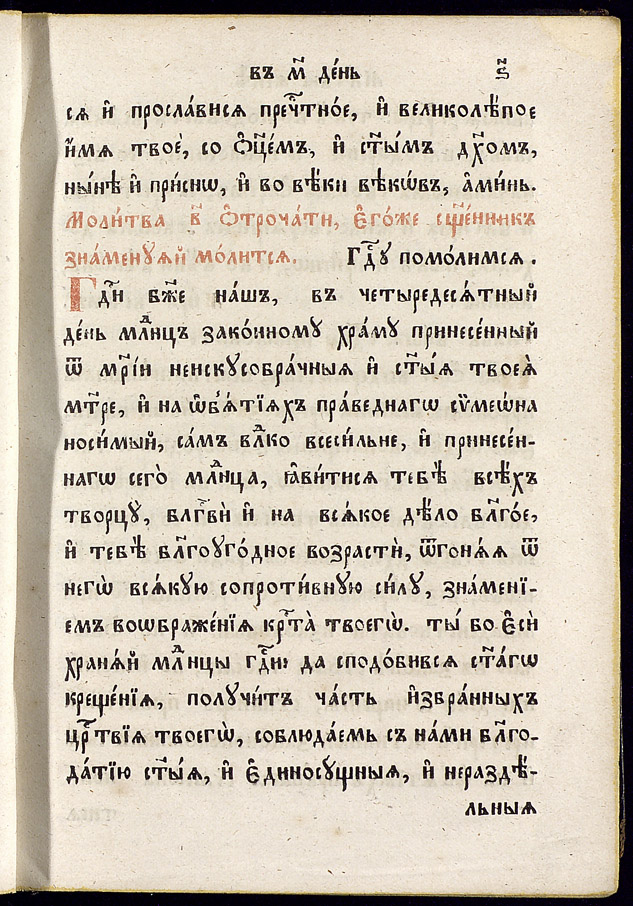 въ м҃ де́нь ѕ҃
сѧ и҆ просла́висѧ пречⷭ҇тно́е, и҆ великолѣ́пое
и҆́мѧ твоѐ, со ѻ҆ц҃е́мъ, и҆ ст҃ы́мъ дх҃омъ,
ны́нѣ и҆ при́снѡ, и҆ во вѣ́ки вѣкѡ́въ, а҆ми́нь.
Моли́тва в҃ Ѻ҆троча́ти, Є҆го́же сщ҃е́нникъ
зна́менꙋѧй мо́литсѧ. Гдⷭ҇ꙋ помо́лимсѧ.
Гдⷭ҇и бж҃е на́шъ, въ четыредесѧ́тный
де́нь млⷣнцъ зако́нномꙋ хра́мꙋ принесе́нный
ѿ мр҃і́и неискꙋсобра́чныѧ и҆ ст҃ы́ѧ твоеѧ̀
мт҃ре, и҆ на ѡ҆б̾ѧ́тїѧхъ пра́веднагѡ сѷмеѡ́на
носи́мый, са́мъ влⷣко всеси́льне, и҆ принесе́н-
нагѡ сего̀ млⷣнца, ꙗ҆ви́тисѧ тебѣ̀ всѣ́хъ
творцꙋ̀, блгⷭ҇вѝ и҆ на всѧ́кое дѣ́ло бл҃го́е,
и҆ тебѣ̀ бл҃гоꙋго́дное возрастѝ, ѿгонѧ́ѧ ѿ
негѡ̀ всѧ́кꙋю сопроти́внꙋю си́лꙋ, зна́менї-
емъ воѡбраже́нїѧ крⷭ҇та̀ твоегѡ̀. ты́ бо Є҆сѝ
хранѧ́й млⷣнцы гдⷭ҇и: да сподо́бивсѧ ст҃а́гѡ
креще́нїѧ, полꙋчи́тъ ча́сть и҆збра́нныхъ
црⷭ҇твїѧ твоегѡ̀, соблюда́емь съ на́ми бл҃го-
да́тїю ст҃ы́ѧ, и҆ Є҆диносꙋ́щныѧ, и҆ нераздѣ́-
льныѧ